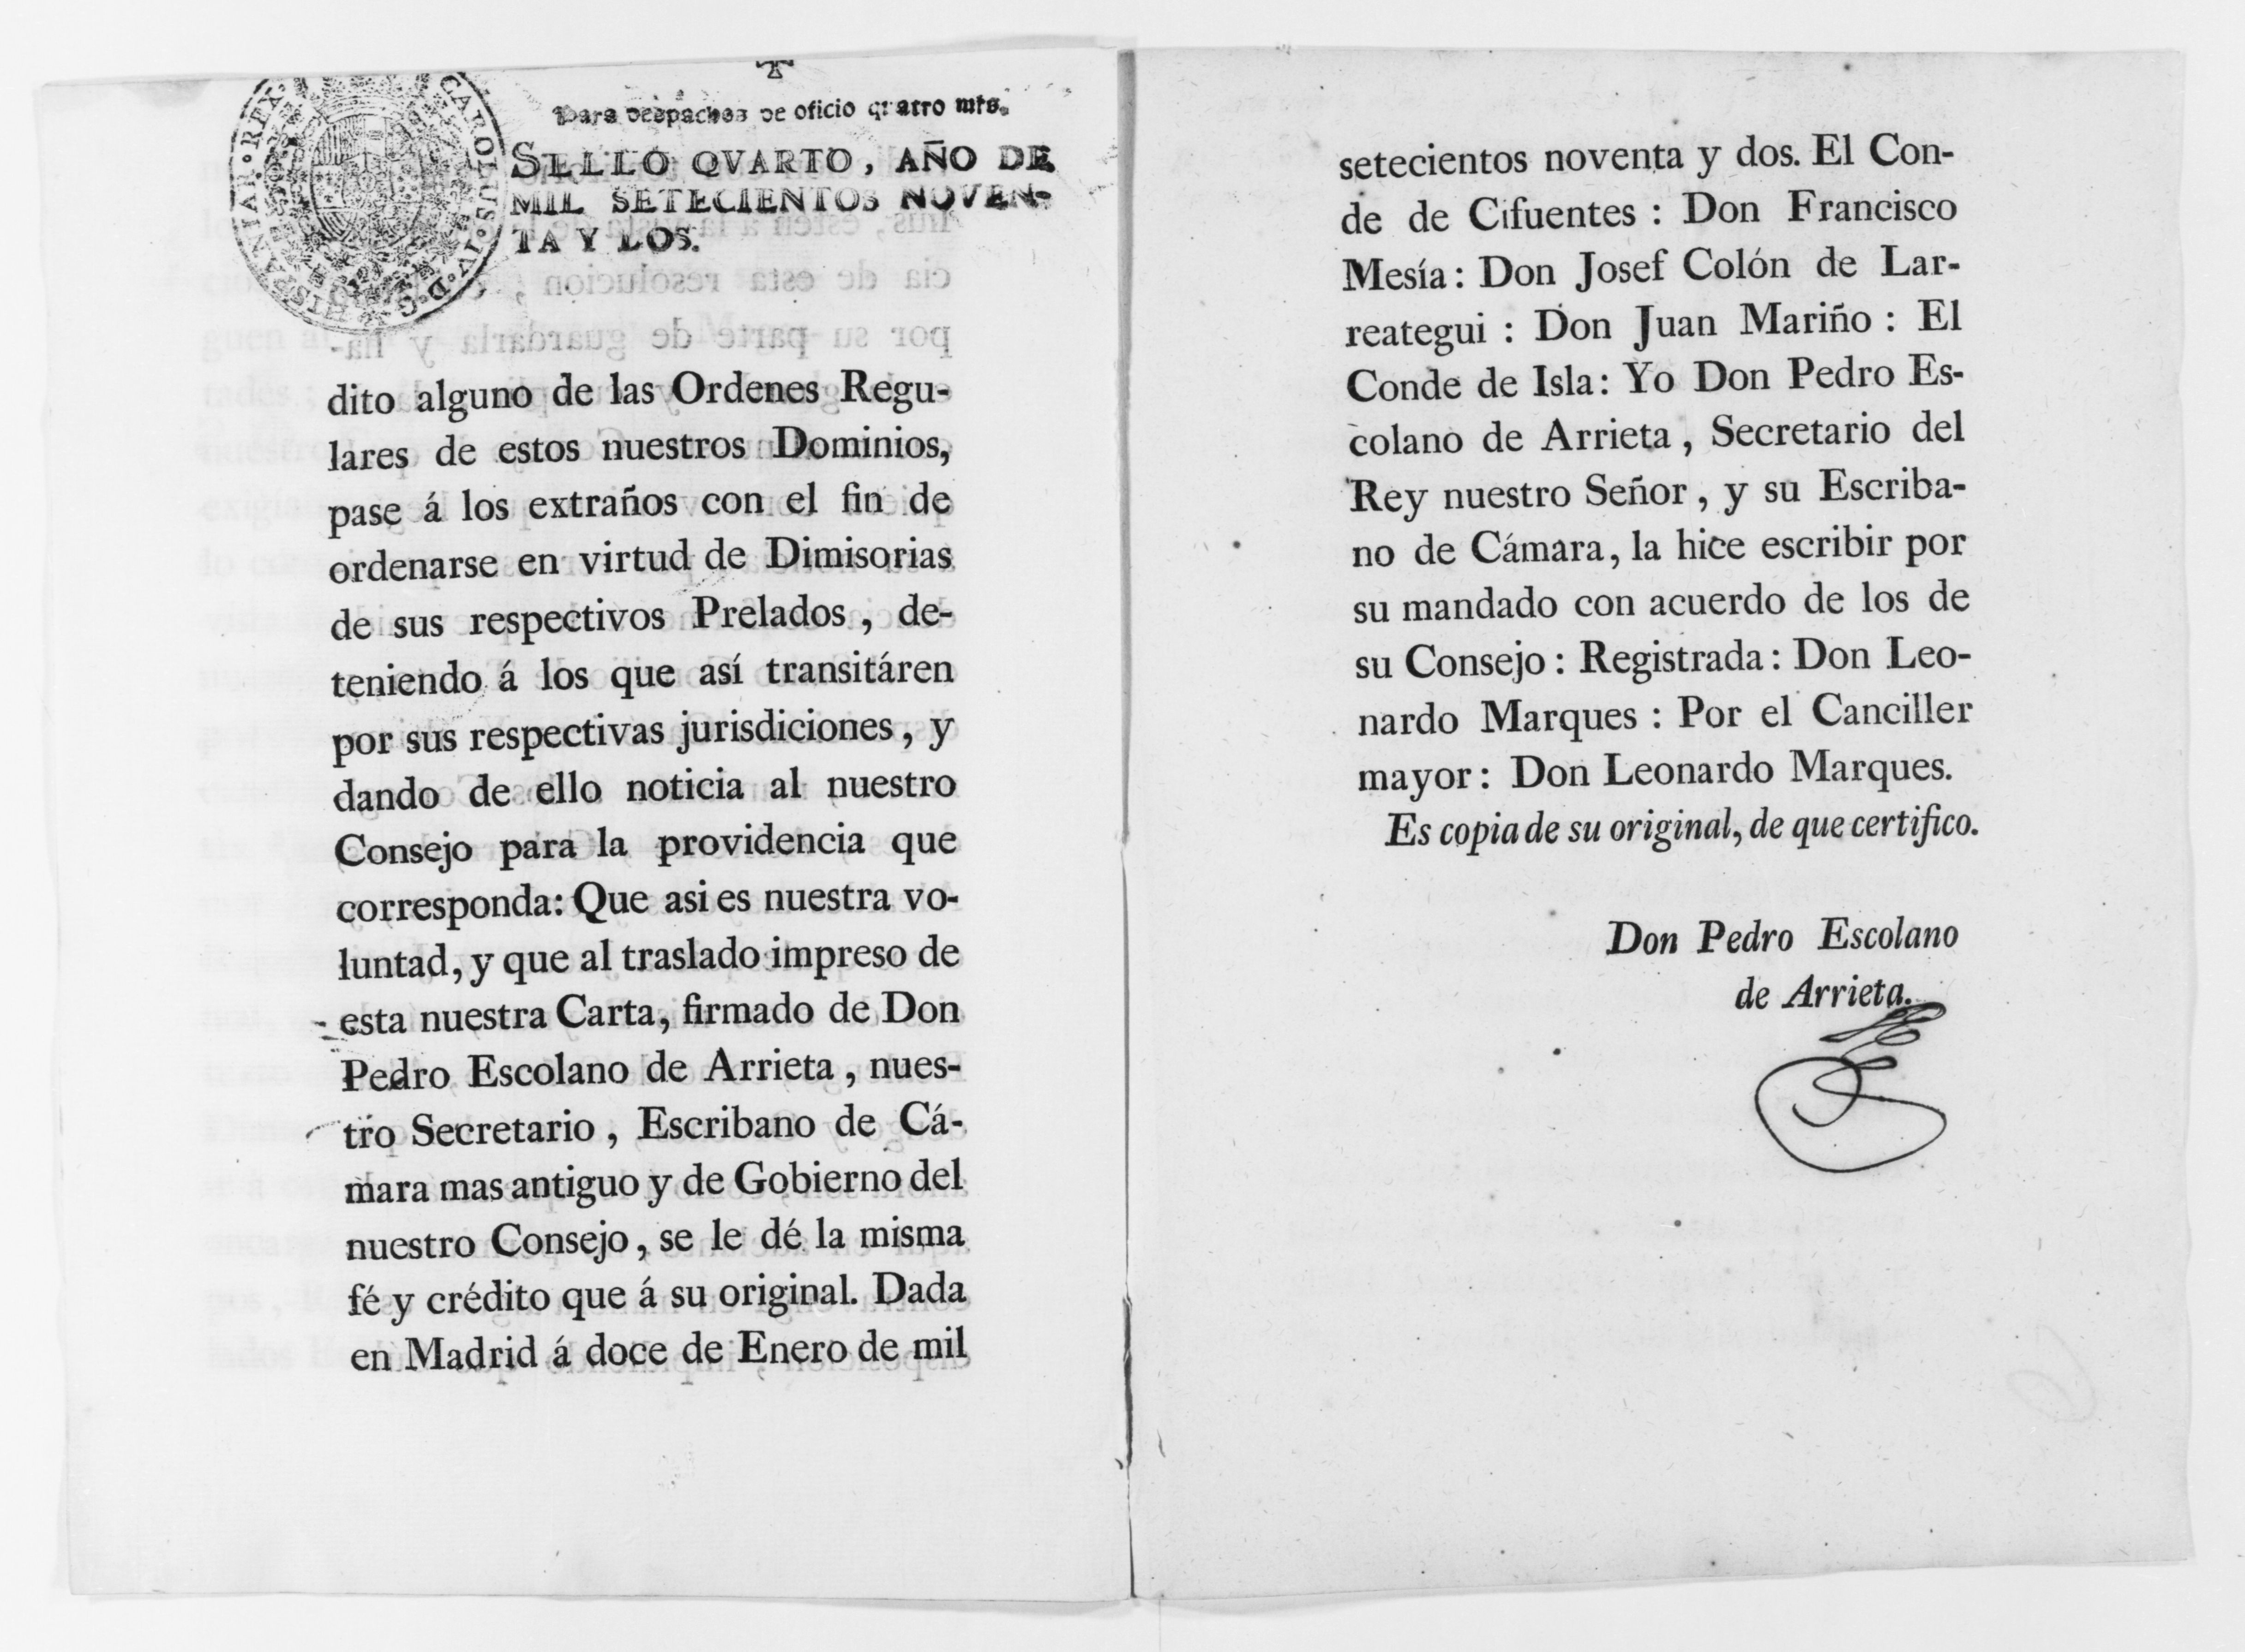 Para despachos de oficio quatro mrs.
SELLO QVARTO, AÑO DE
MIL SETECIENTOS NOVEN-
TA Y DOS.
CAROLUS·IV·D·G·HISPANIAR·REX·
dito alguno de las Ordenes Regu-
lares de estos nuestros Dominios,
pase á los extraños con el fin de
ordenarse en virtud de Dimisorias
de sus respectivos Prelados, de-
teniendo á los que así transitáren
por sus respectivas jurisdiciones, y
dando de ello noticia al nuestro
Consejo para la providencia que
corresponda: Que asi es nuestra vo-
luntad, y que al traslado impreso de
esta nuestra Carta, firmado de Don
Pedro Escolano de Arrieta, nues-
tro Secretario, Escribano de Cá-
mara mas antiguo y de Gobierno del
nuestro Consejo, se le dé la misma
fé y crédito que á su original. Dada
en Madrid á doce de Enero de mil
setecientos noventa y dos. El Con-
de de Cifuentes: Don Francisco
Mesía: Don Josef Colón de Lar-
reategui: Don Juan Mariño: El
Conde de Isla: Yo Don Pedro Es-
colano de Arrieta, Secretario del
Rey nuestro Señor, y su Escriba-
no de Cámara, la hice escribir por
su mandado con acuerdo de los de
su Consejo: Registrada: Don Leo-
nardo Marques: Por el Canciller
mayor: Don Leonardo Marques.
Es copia de su original, de que certifico.
Don Pedro Escolano
de Arrieta.